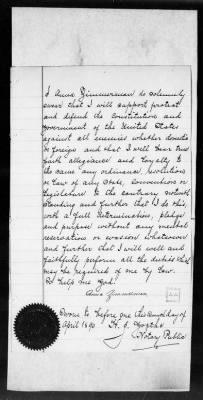 I Anna Zimmerman do solemnly
swear that I will support protect
and defend the constitution and
government of the United States
against all enemies whether domestic
or foreign and that I will bear true
faith allegiance and loyalty to
the same any ordinance, resolution
or law of any State, Convention or
Legislature to the contrary notwith
standing and further that I do this,
with a full determination, pledge
and purpose without any mental
reservation or evasion whatsoever
and further that I will well and
faithfully perform all the duties that
may be required of me by law.
So help me God.
Anna Zimmerman
Sworn to before me this day of
April 1890
Notary Public